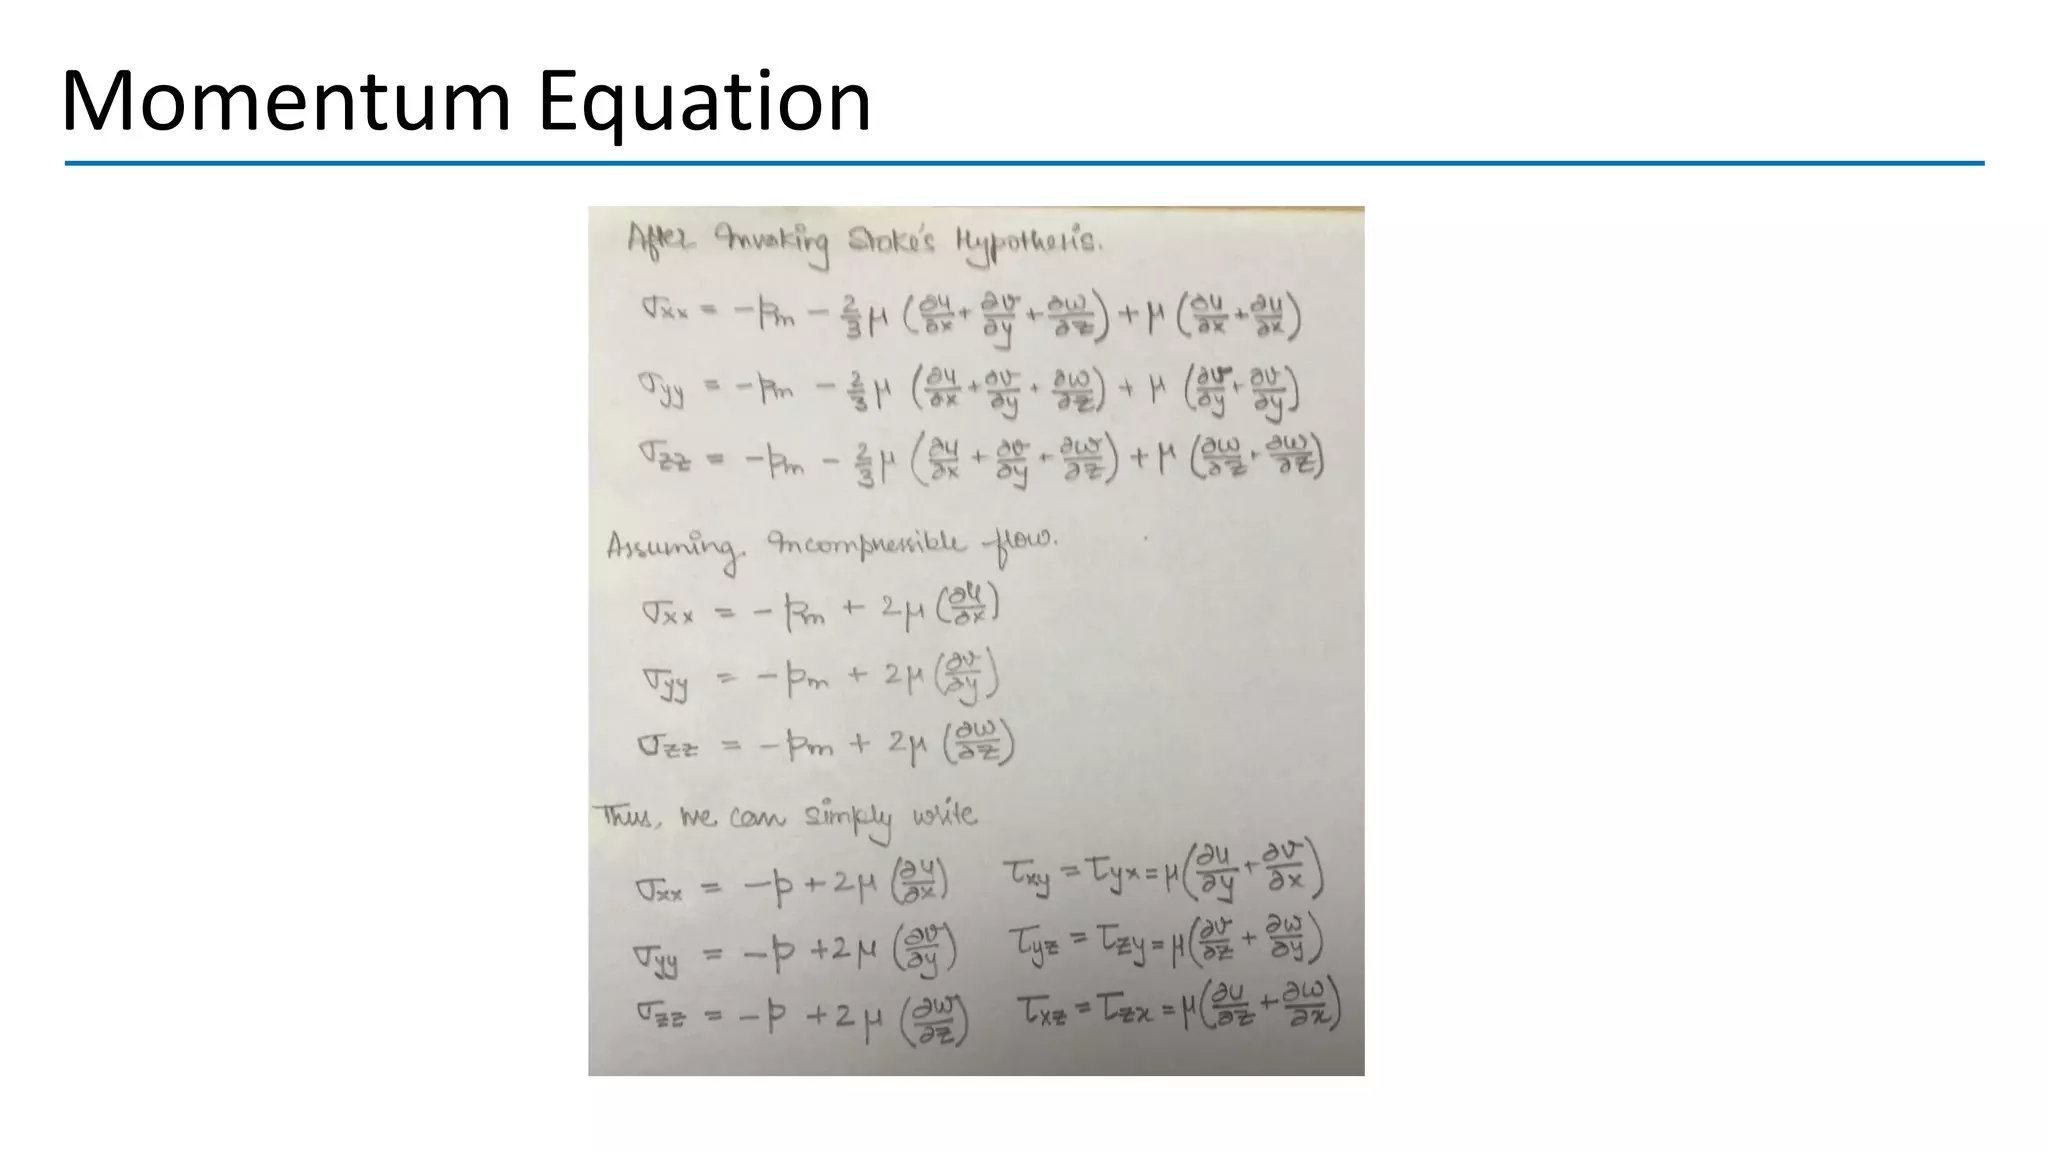 Momentum Equation
After Invoking Stoke's Hypothesis.
σxx = -pm - 2/3 μ (∂u/∂x + ∂v/∂y + ∂w/∂z) + μ (∂u/∂x + ∂u/∂x)
σyy = -pm - 2/3 μ (∂u/∂x + ∂v/∂y + ∂w/∂z) + μ (∂v/∂y + ∂v/∂y)
σzz = -pm - 2/3 μ (∂u/∂x + ∂v/∂y + ∂w/∂z) + μ (∂w/∂z + ∂w/∂z)
Assuming Incompressible flow.
σxx = -pm + 2μ (∂u/∂x)
σyy = -pm + 2μ (∂v/∂y)
σzz = -pm + 2μ (∂w/∂z)
Thus, we can simply write
σxx = -p + 2μ (∂u/∂x) τxy = τyx = μ (∂u/∂y + ∂v/∂x)
σyy = -p + 2μ (∂v/∂y) τyz = τzy = μ (∂v/∂z + ∂w/∂y)
σzz = -p + 2μ (∂w/∂z) τxz = τzx = μ (∂u/∂z + ∂w/∂x)